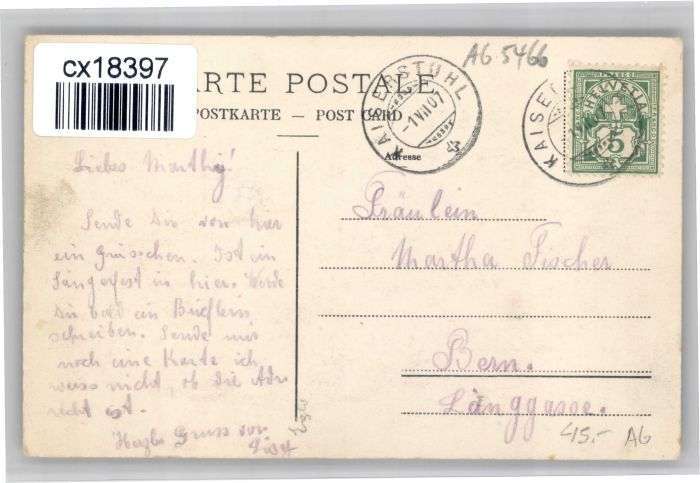 cx18397
AG 5466
CARTE POSTALE
POSTKARTE — POST CARD
KAISERSTUHL
-1 VII 07
KAISE
HELVETIA
5
Adresse
Liebes Marthy!
Sende Dir von hier
ein Grüsschen. Ist ein
Sängerfest in hier. Werde
Dir bald ein Brieflein
schreiben. Sende mir
noch eine Karte ich
weiss nicht, ob die Adr.
recht ist.
Herzl. Gruss von
Fräulein
Martha Fischer
Bern.
Länggasse.
45.- AG